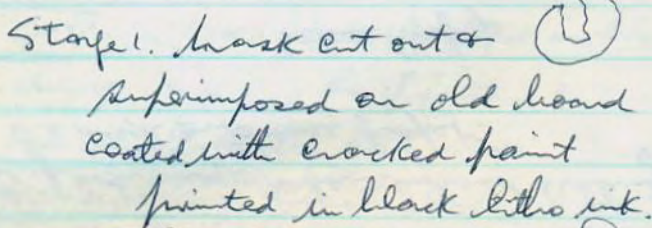 Stage 1. Mask cut out &
superimposed on old board
coated with cracked paint
printed in black litho ink.